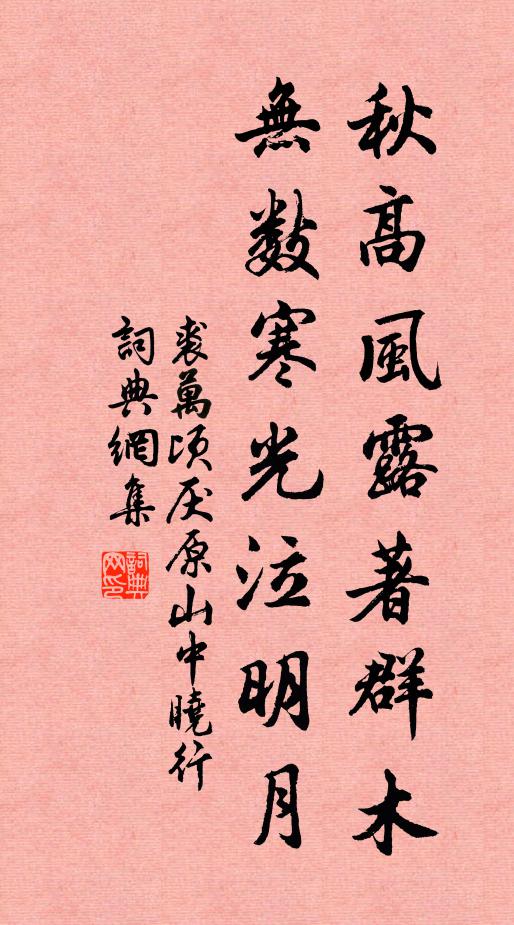 秋高風露著群木
無數寒光泣明月
裘萬頃厌原山中曉行
詞典網集
詞典网印